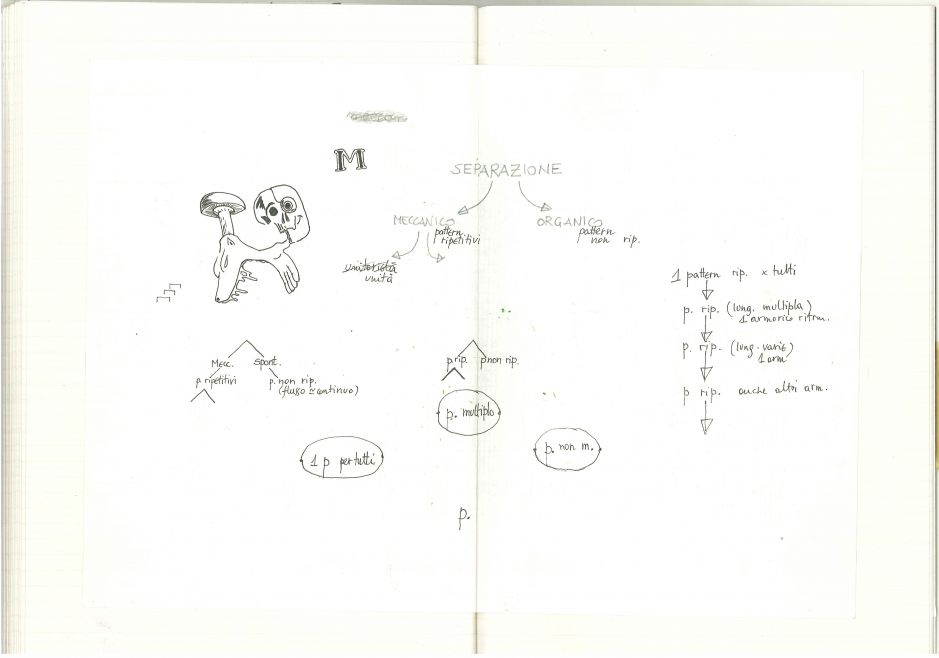 M
SEPARAZIONE
MECCANICO
pattern
ripetitivi
ORGANICO
pattern
non rip.
unità
1 pattern rip. x tutti
p. rip. (lung. multipla)
1 armonico ritm.
p. rip. (lung. varie)
1 arm
p rip. anche altri arm.
Mecc. spont.
p ripetitivi
p. non rip.
(flusso ≃ continuo)
p rip. p non rip.
p. multiplo
1 p per tutti
p. non m.
p.